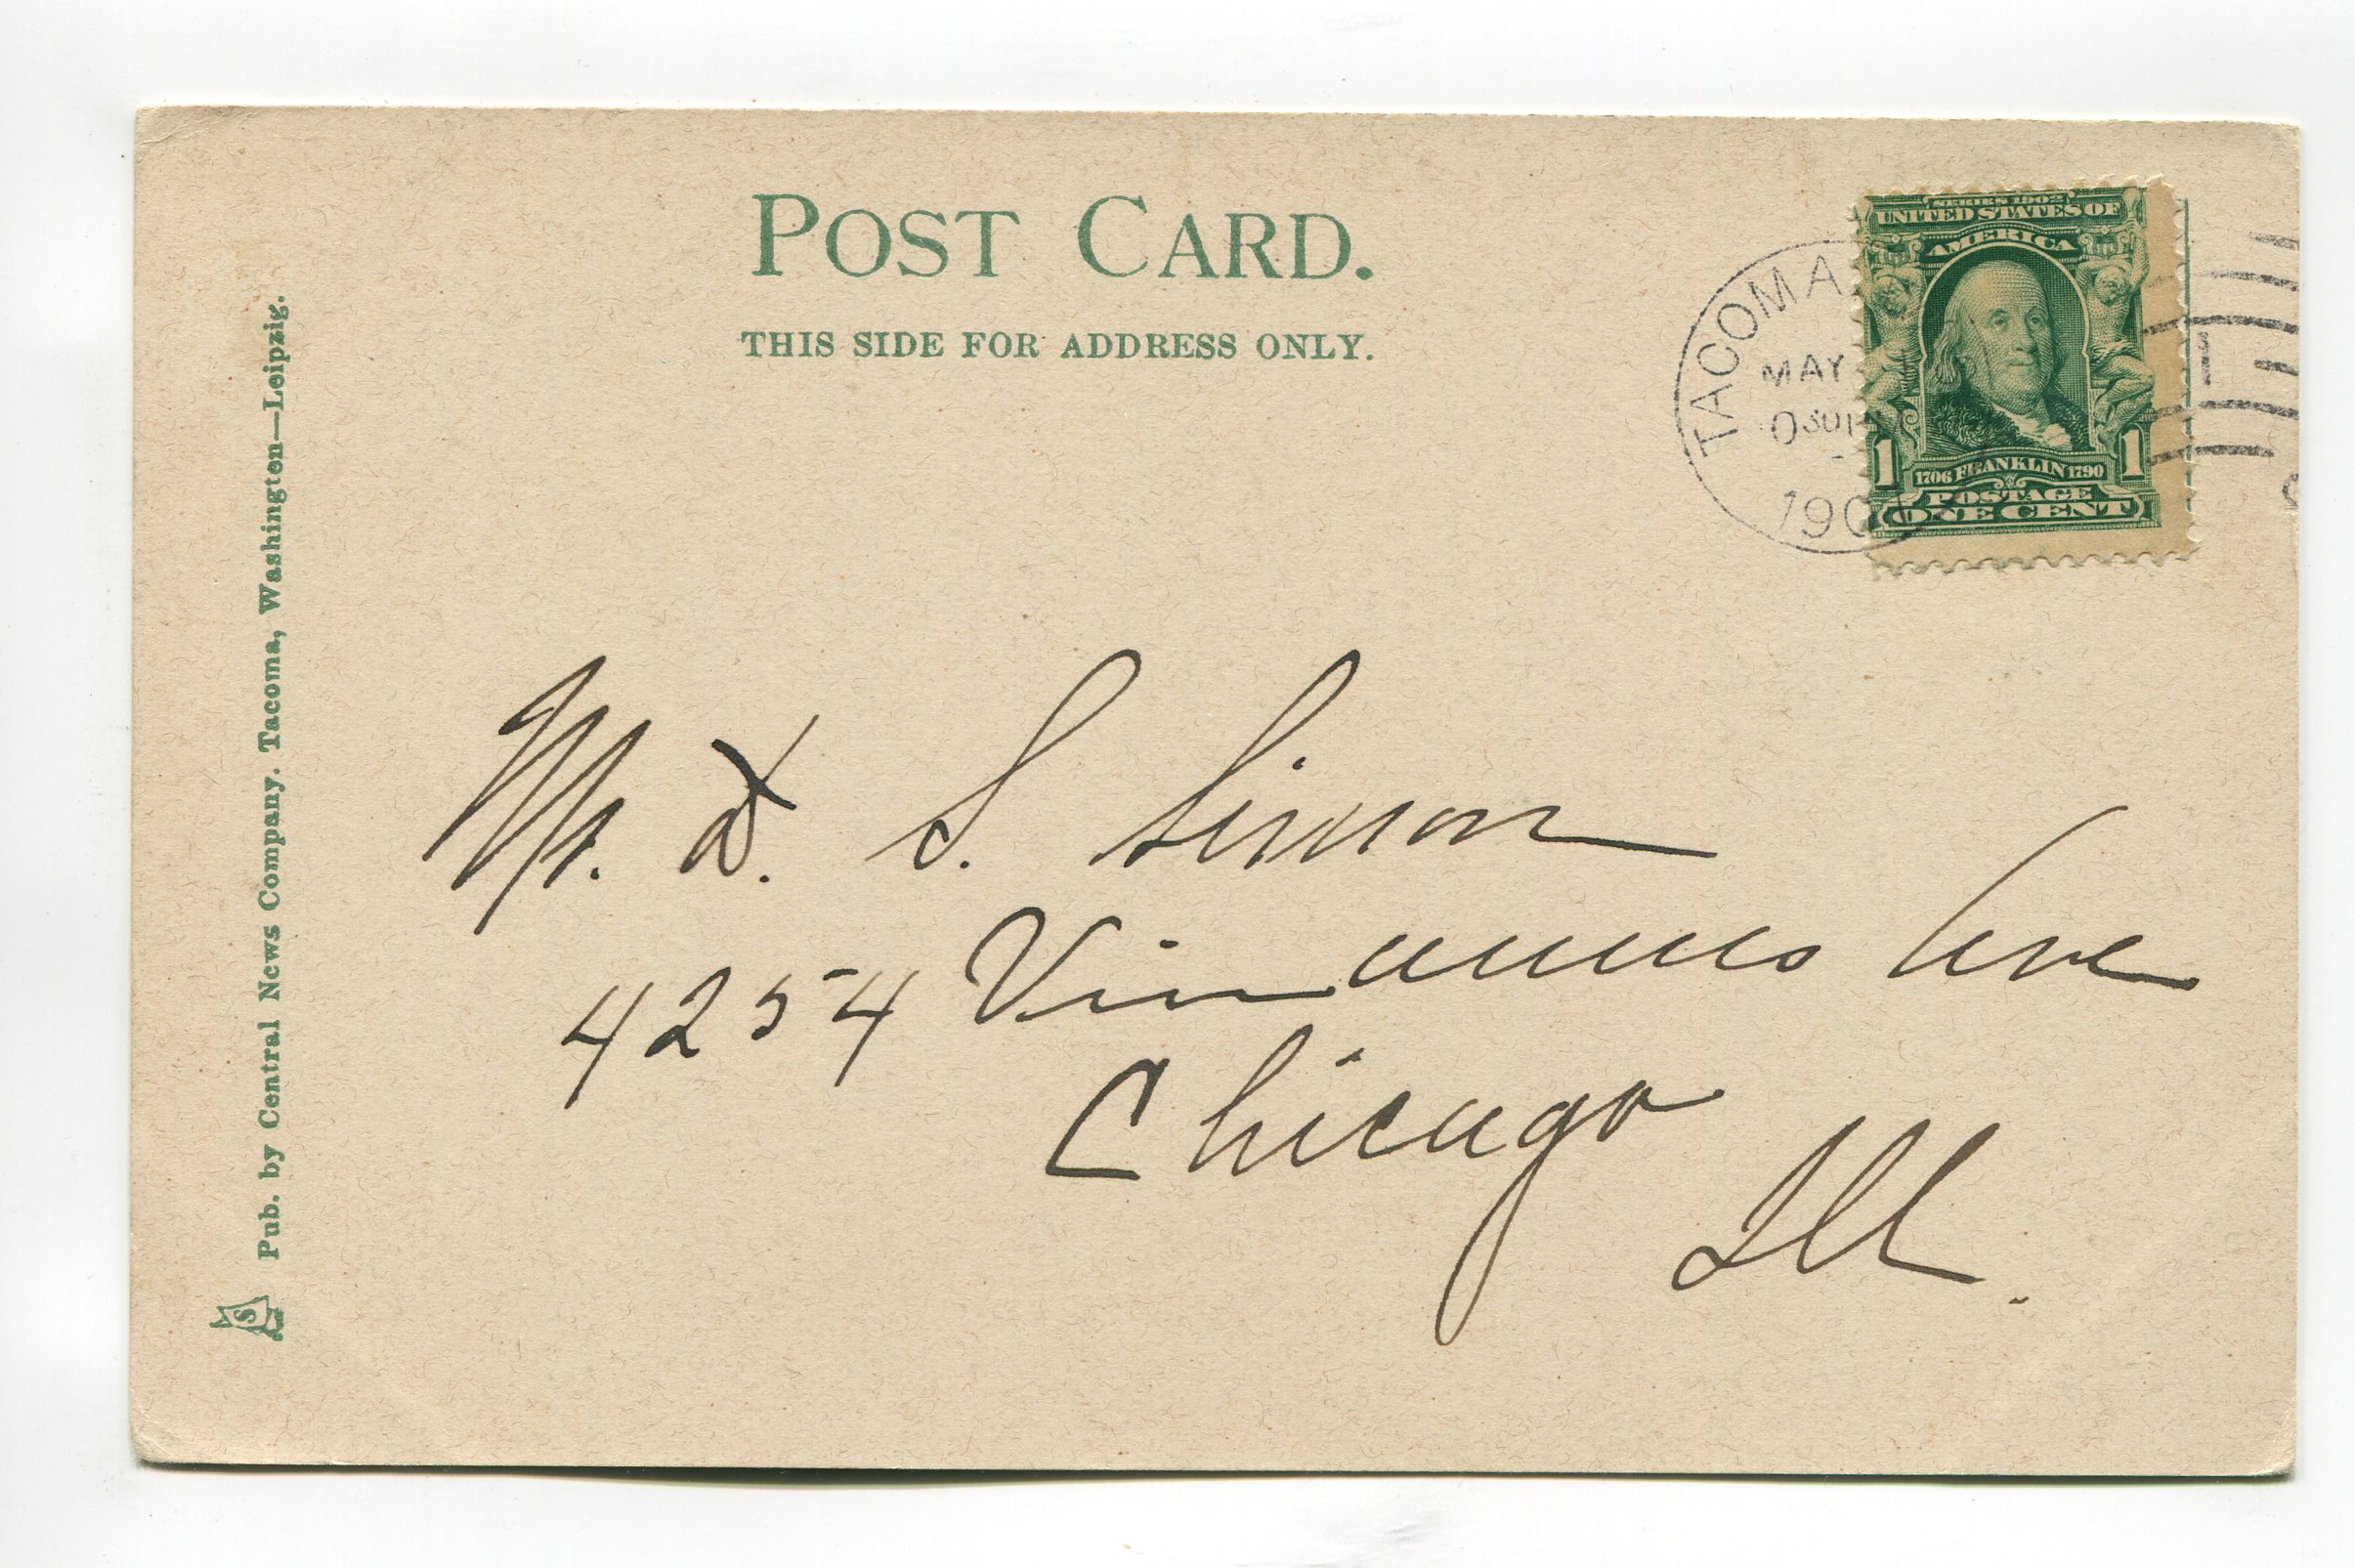 POST CARD.
THIS SIDE FOR ADDRESS ONLY.
TACOMA
MAY
190
SERIES 1902
UNITED STATES OF
AMERICA
1706 FRANKLIN 1790
1 1
POSTAGE
ONE CENT
Mr. S. Simon
4254 Ave
Chicago
Ill.
Pub. by Central News Company. Tacoma, Washington—Leipzig.
S